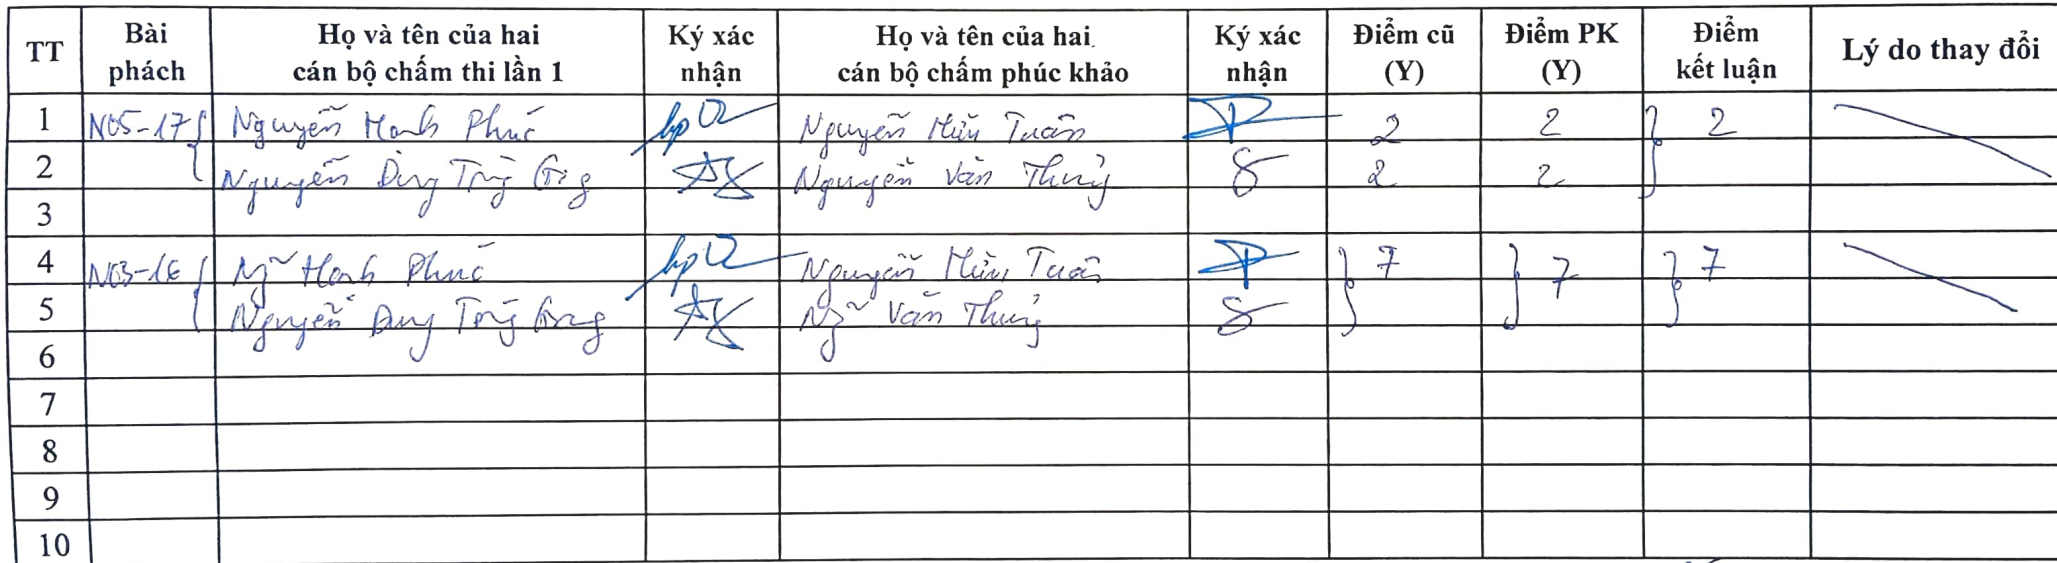 TT Bài phách Họ và tên của hai cán bộ chấm thi lần 1 Ký xác nhận Họ và tên của hai cán bộ chấm phúc khảo Ký xác nhận Điểm cũ (Y) Điểm PK (Y) Điểm kết luận Lý do thay đổi
1 N05-17 Nguyễn Mạnh Phúc Nguyễn Hữu Tuân 2 2 2
2 Nguyễn Duy Nguyễn Văn Thủy 2 2
3
4 N03-16 Ng~ Mạnh Phúc Nguyễn Hữu Tuân 7 7 7
5 Nguyễn Duy Ng~ Văn Thủy
6
7
8
9
10